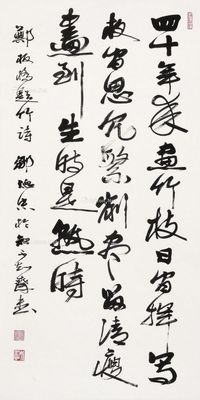 四十年來畫竹枝日間揮寫
夜間思冗繁削盡留清瘦
畫到生時是熟時
鄭板橋題竹詩